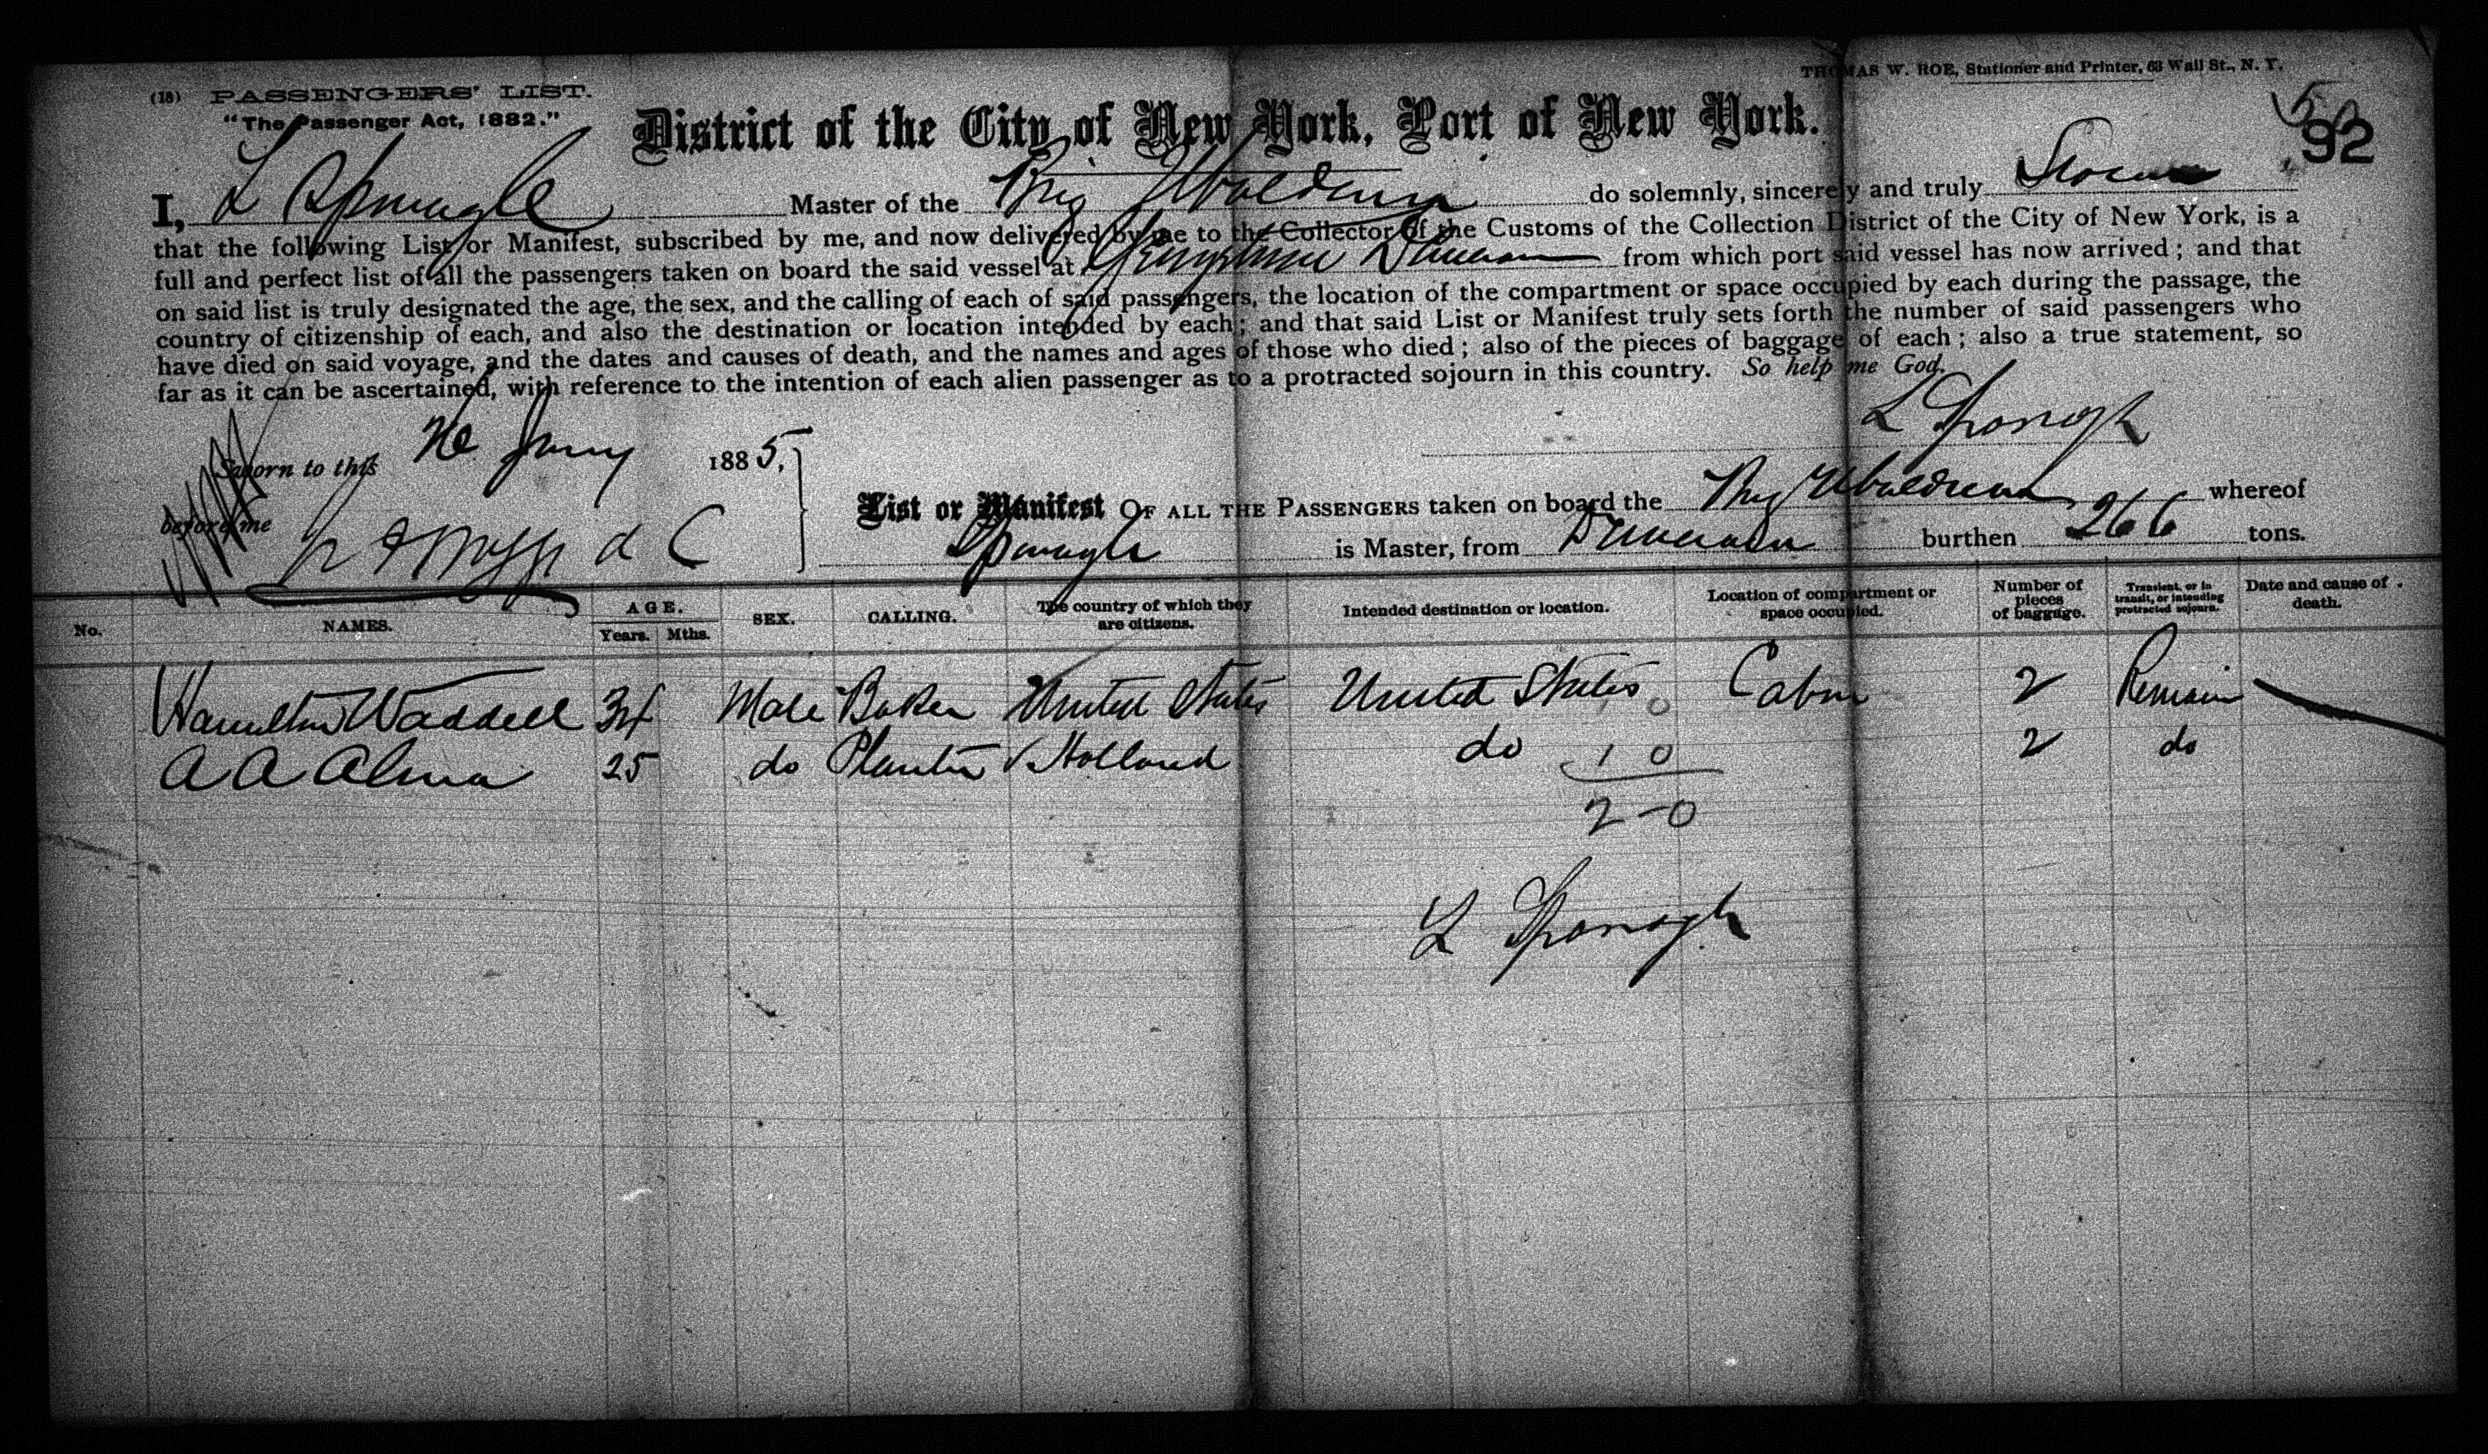 THOMAS W. ROE, Stationer and Printer, 63 Wall St., N. Y.
(18) PASSENGERS' LIST.
"The Passenger Act, 1882."
District of the City of New York, Port of New York.
92
I, L Master of the Brig do solemnly, sincerely and truly
that the following List or Manifest, subscribed by me, and now delivered by me to the Collector of the Customs of the Collection District of the City of New York, is a
full and perfect list of all the passengers taken on board the said vessel at from which port said vessel has now arrived; and that
on said list is truly designated the age, the sex, and the calling of each of said passengers, the location of the compartment or space occupied by each during the passage, the
country of citizenship of each, and also the destination or location intended by each; and that said List or Manifest truly sets forth the number of said passengers who
have died on said voyage, and the dates and causes of death, and the names and ages of those who died; also of the pieces of baggage of each; also a true statement, so
far as it can be ascertained, with reference to the intention of each alien passenger as to a protracted sojourn in this country. So help me God.
Sworn to this 1885,
before me
List or Manifest OF ALL THE PASSENGERS taken on board the Brig whereof
is Master, from burthen 266 tons.
No. NAMES. AGE. Years. Mths. SEX. CALLING. The country of which they are citizens. Intended destination or location. Location of compartment or space occupied. Number of pieces of baggage. Transient, or in transit, or intending protracted sojourn. Date and cause of death.
Hamilton Waddell 34 Male Baker United States United States 0 Cabin 2 Remain
A A Alma 25 do Planter Holland do 1 0 2 do
2 - 0